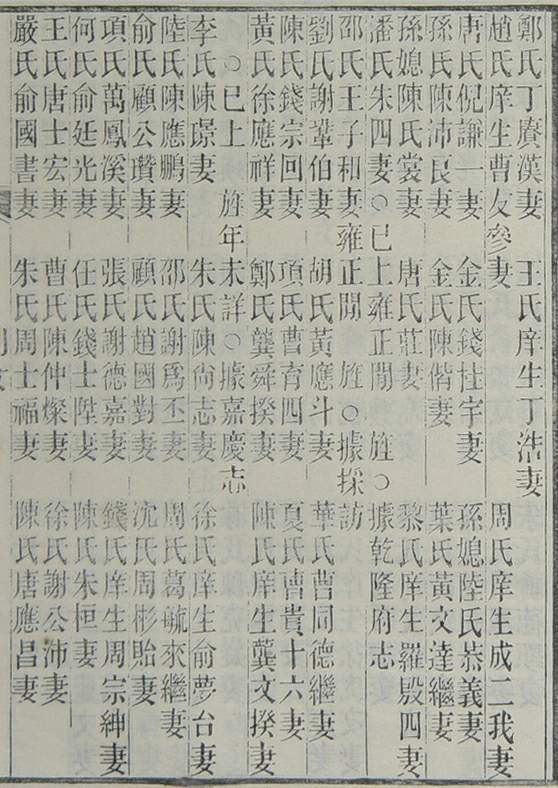 鄭氏丁賡漢妻　王氏庠生丁浩妻
趙氏庠生曹友參妻　周氏庠生成二我妻
唐氏倪謙一妻　金氏錢拄宇妻　孫媳陸氏恭義妻
孫氏陳沛良妻　金氏陳偕妻　葉氏黃文達繼妻
孫媳陳氏裳妻　唐氏莊妻　黎氏庠生羅殿四妻
潘氏朱四妻○已上雍正閒　旌○據乾隆府志
邵氏王子和妻雍正閒　旌○據採訪
劉氏謝鞏伯妻　胡氏黃應斗妻　華氏曹同德繼妻
陳氏錢宗回妻　項氏曹育四妻　夏氏曹貴十六妻
黃氏徐應祥妻　鄭氏龔舜揆妻　陳氏庠生龔文揆妻
○已上　旌年未詳○據嘉慶志
李氏陳璟妻　朱氏陳尚志妻　徐氏庠生俞夢台妻
陸氏陳應鵬妻　邵氏謝爲丕妻　周氏葛毓來繼妻
俞氏顧公瓚妻　顧氏趙國對妻　沈氏周彬貽妻
項氏萬鳳溪妻　張氏謝德嘉妻　錢氏庠生周宗紳妻
何氏俞廷光妻　任氏錢士陞妻　陳氏朱恒妻
王氏唐士宏妻　曹氏陳仲燦妻　徐氏謝公沛妻
嚴氏俞國書妻　朱氏周士福妻　陳氏唐應昌妻